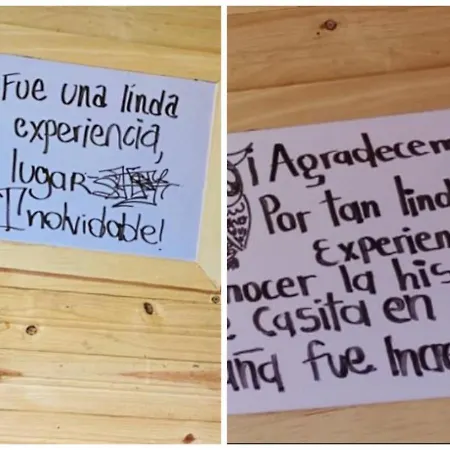 Fue una linda
experiencia,
lugar
Inolvidable!
¡Agradecem
Por tan lind
Experien
nocer la his
Casita en
aña fue Incr